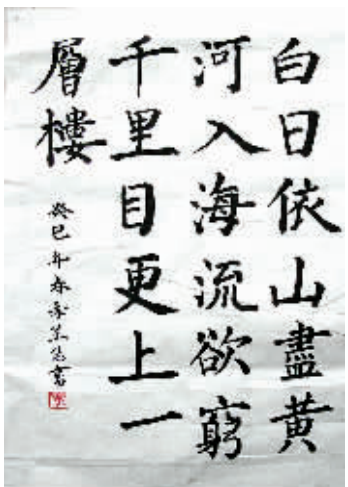 白日依山盡黃
河入海流欲窮
千里目更上一
層樓
癸巳年春